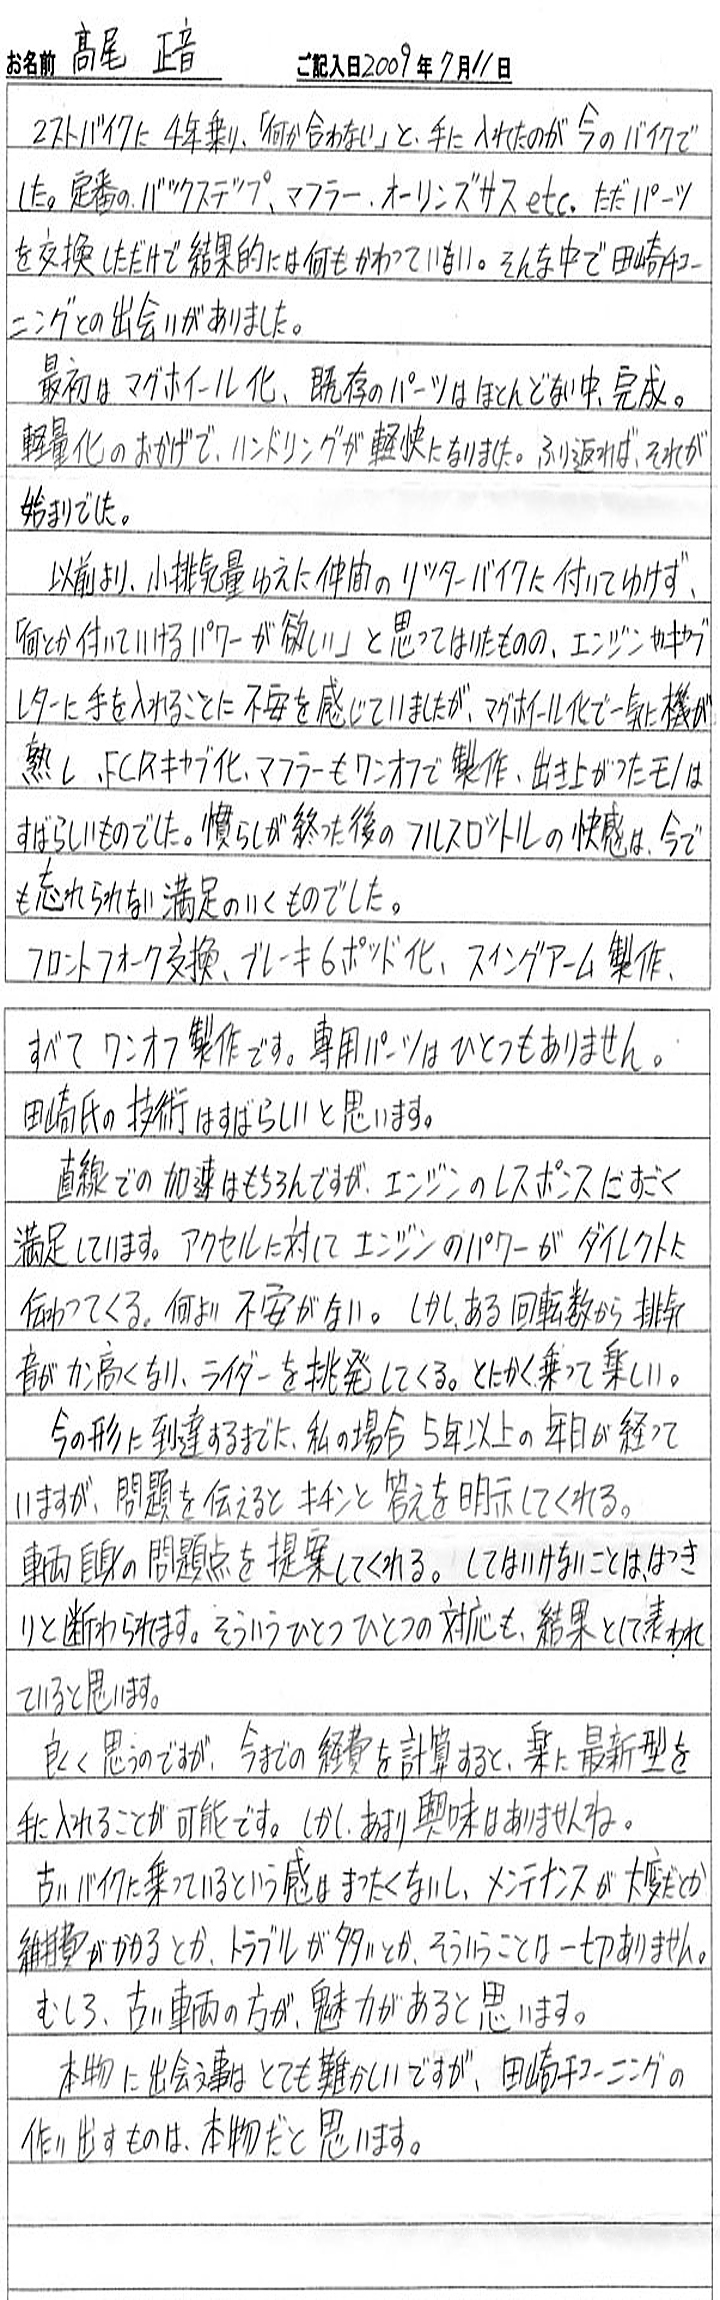 お名前 髙尾 正音 ご記入日2009年7月11日
2ストバイクに4年乗り、「何か合わない」と、手に入れたのが今のバイクで
した。定番の、バックステップ、マフラー、オーリンズサスetc. ただパーツ
を交換しただけで結果的には何もかわっていない。そんな中で田崎チュー
ニングとの出会いがありました。
最初はマグホイール化、既存のパーツはほとんどない中、完成。
軽量化のおかげで、ハンドリングが軽快になりました。ふり返れば、それが
始まりでした。
以前より、小排気量ゆえに仲間のリッターバイクに付いてゆけず、
「何とか付いていけるパワーが欲しい」と思ってはいたものの、エンジンやキャブ
レターに手を入れることに不安を感じていましたが、マグホイール化で一気に機が
熟し、FCRキャブ化、マフラーもワンオフで製作、出き上がったモノは
すばらしいものでした。慣らしが終った後のフルスロットルの快感は、今で
も忘れられない満足のいくものでした。
フロントフォーク交換、ブレーキ6ポッド化、スイングアーム製作、
すべてワンオフ製作です。専用パーツはひとつもありません。
田崎氏の技術はすばらしいと思います。
直線での加速はもちろんですが、エンジンのレスポンスにすごく
満足しています。アクセルに対してエンジンのパワーがダイレクトに
伝わってくる。何より不安がない。しかし、ある回転数から排気
音がカン高くなり、ライダーを挑発してくる。とにかく、乗って楽しい。
今の形に到達するまでに、私の場合5年以上の年月が経って
いますが、問題を伝えるとキチンと答えを明示してくれる。
車両自身の問題点を提案してくれる。してはいけないことは、はっき
りと断わられます。そういうひとつひとつの対応も、結果として表われ
ていると思います。
良く思うのですが、今までの経費を計算すると、楽に最新型を
手に入れることが可能です。しかし、あまり興味はありませんね。
古いバイクに乗っているという感はまったくないし、メンテナンスが大変だとか
維持費がかかるとか、トラブルが多いとか、そういうことは一切ありません。
むしろ、古い車両の方が、魅力があると思います。
本物に出会う事はとても難かしいですが、田崎チューニングの
作り出すものは、本物だと思います。